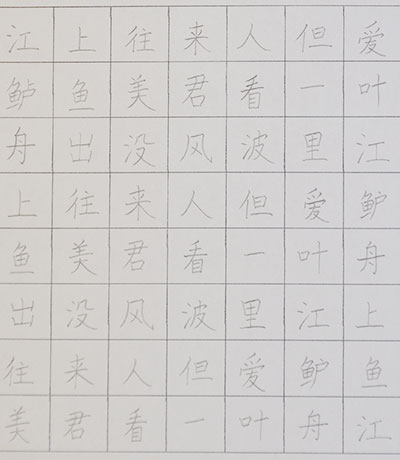 江上往来人但爱
鲈鱼美君看一叶
舟出没风波里江
上往来人但爱鲈
鱼美君看一叶舟
出没风波里江上
往来人但爱鲈鱼
美君看一叶舟江